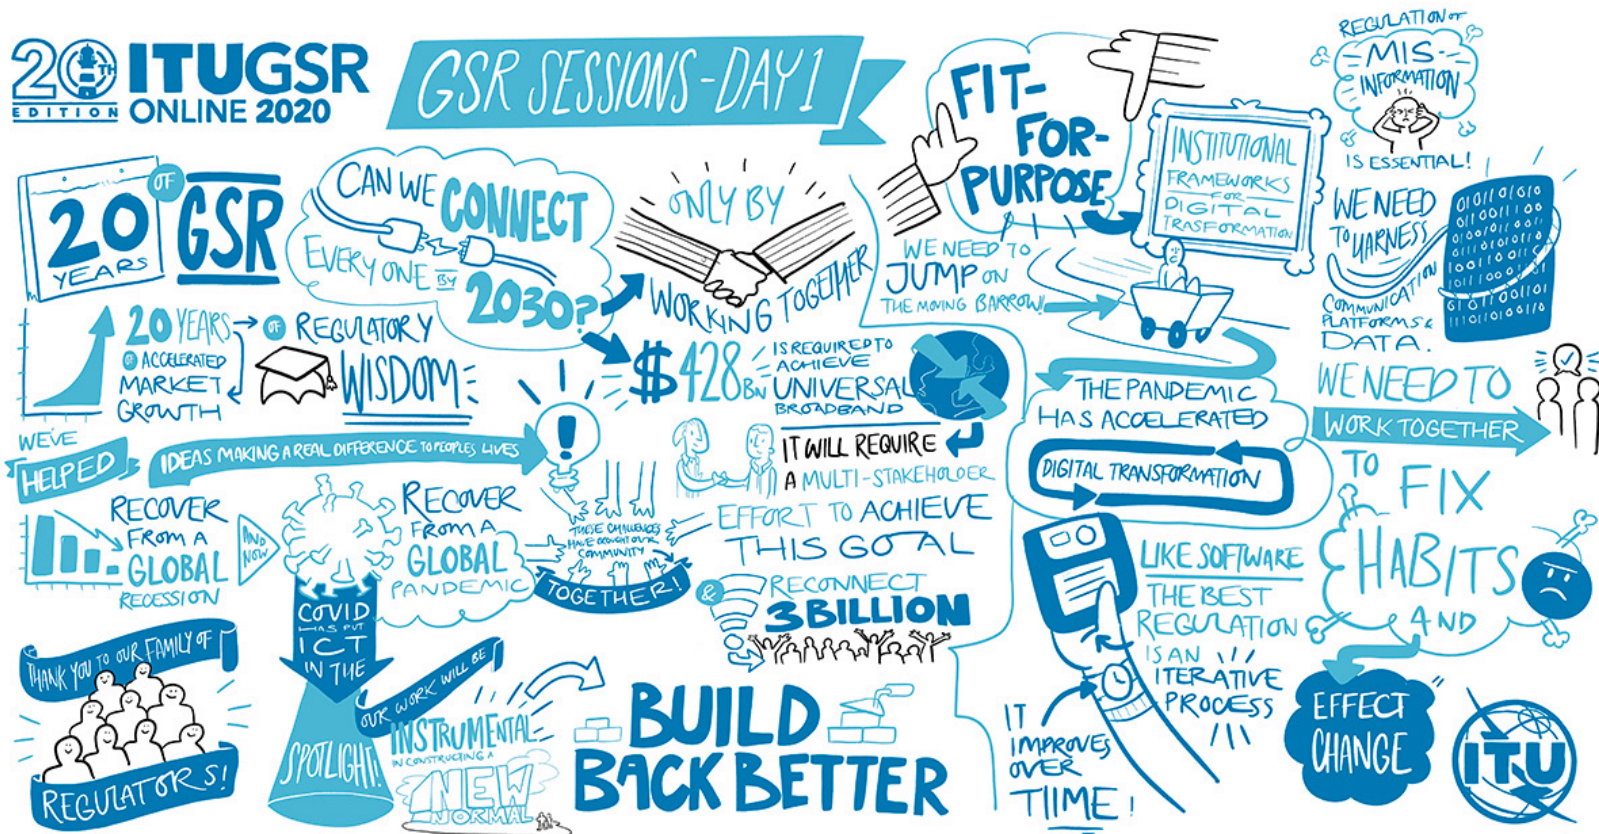 20TH
EDITION
ITUGSR
ONLINE 2020
GSR SESSIONS - DAY 1
20
YEARS
OF
GSR
20 YEARS
OF ACCELERATED
MARKET
GROWTH
OF REGULATORY
WISDOM
CAN WE
CONNECT
EVERY ONE BY
2030?
ONLY BY
WORKING TOGETHER
$428BN
IS REQUIRED TO
ACHIEVE
UNIVERSAL
BROADBAND
IT WILL REQUIRE
A MULTI-STAKEHOLDER
EFFORT TO ACHIEVE
THIS GOAL
& RECONNECT
3 BILLION
WE'VE
HELPED
IDEAS MAKING A REAL DIFFERENCE TO PEOPLES LIVES
!
RECOVER
FROM A
GLOBAL
RECESSION
AND
NOW
RECOVER
FROM A
GLOBAL
PANDEMIC
THESE CHALLENGES
HAVE BROUGHT OUR
COMMUNITY
TOGETHER!
COVID
HAS PUT
ICT
IN THE
SPOTLIGHT!
THANK YOU TO OUR FAMILY OF
REGULATORS!
OUR WORK WILL BE
INSTRUMENTAL
IN CONSTRUCTING A
NEW
NORMAL
BUILD
BACK BETTER
FIT-
FOR-
PURPOSE
INSTITUTIONAL
FRAMEWORKS
FOR
DIGITAL
TRASFORMATION
WE NEED TO
JUMP ON
THE MOVING BARROW!
THE PANDEMIC
HAS ACCELERATED
DIGITAL TRANSFORMATION
LIKE SOFTWARE
THE BEST
REGULATION
IS AN
ITERATIVE
PROCESS
IT
IMPROVES
OVER
TIIME!
REGULATION OF
MIS-
INFORMATION
IS ESSENTIAL!
WE NEED
TO HARNESS
COMMUNICATION
PLATFORMS &
DATA.
WE NEED TO
WORK TOGETHER
TO FIX
HABITS
AND
EFFECT
CHANGE
ITU